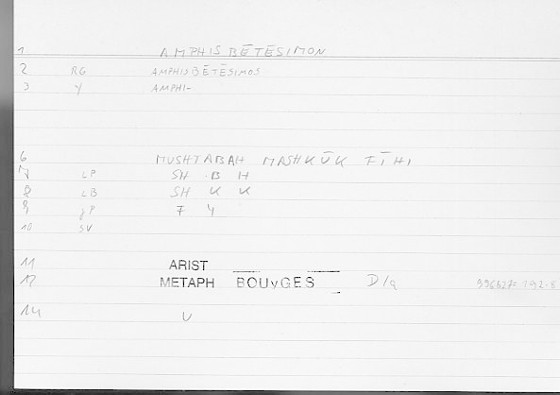 1 AMPHISBĒTĒSIMON
2 RG AMPHISBĒTĒSIMOS
3 Y AMPHI-
6 MUSHTABAH MASHKŪK FĪHI
7 LP SH B H
8 LB SH K K
9 JP F Y
10 SV
11 ARIST
12 METAPH BOUyGES D/q
14 V